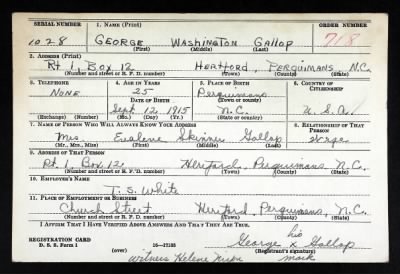 SERIAL NUMBER 1. NAME (Print) ORDER NUMBER
1028 GEORGE WASHINGTON GALLOP 718
(First) (Middle) (Last)
2. ADDRESS (Print)
Rt 1, Box 12 HERTFORD, PERQUIMANS N.C.
(Number and street or R. F. D. number) (Town) (County) (State)
3. TELEPHONE 4. AGE IN YEARS 5. PLACE OF BIRTH 6. COUNTRY OF CITIZENSHIP
NONE 25 Perquimans
DATE OF BIRTH (Town or county)
Sept 12, 1915 N.C. U.S.A.
(Exchange) (Number) (Mo.) (Day) (Yr.) (State or country)
7. NAME OF PERSON WHO WILL ALWAYS KNOW YOUR ADDRESS 8. RELATIONSHIP OF THAT PERSON
Mrs. Skinner Gallop Wife
(Mr., Mrs., Miss) (First) (Middle) (Last)
9. ADDRESS OF THAT PERSON
Rt. 1, Box 12, Hertford, Perquimans, N.C.
(Number and street or R. F. D. number) (Town) (County) (State)
10. EMPLOYER'S NAME
T. S. White
11. PLACE OF EMPLOYMENT OR BUSINESS
Church Street Hertford, Perquimans, N.C.
(Number and street or R. F. D. number) (Town) (County) (State)
I AFFIRM THAT I HAVE VERIFIED ABOVE ANSWERS AND THAT THEY ARE TRUE.
his
REGISTRATION CARD George x Gallop
D. S. S. Form 1 16—17105 (Registrant's signature) mark
(over) witness Helene